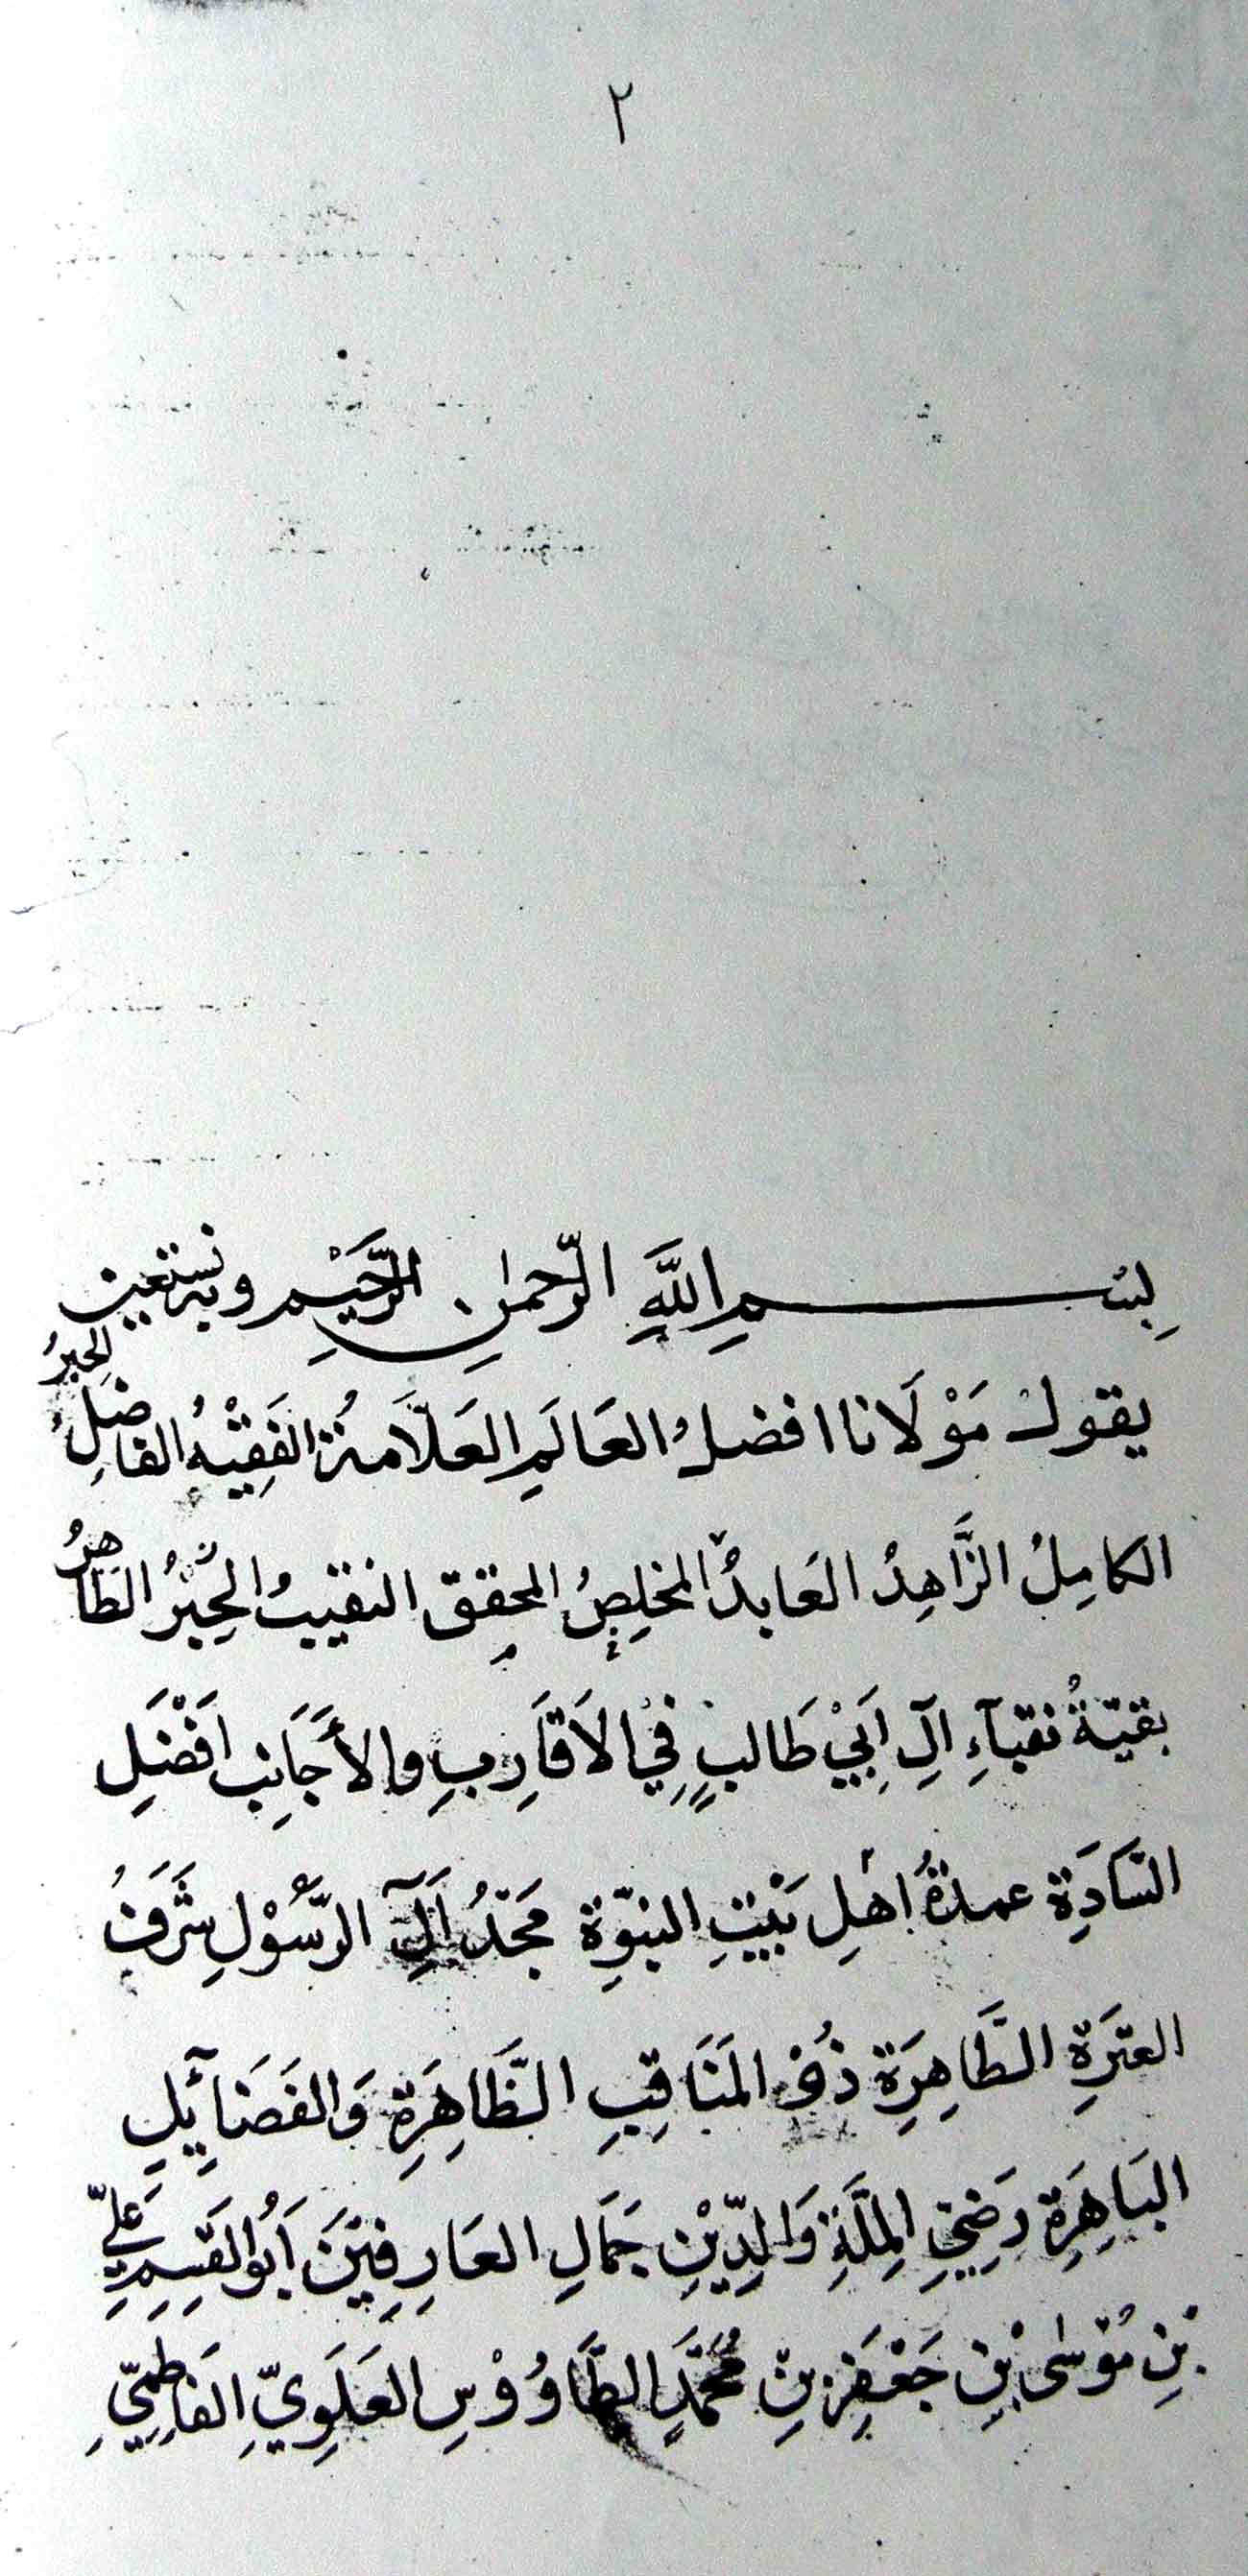 ٢
بِسْمِ اللَّهِ الرَّحمٰنِ الرَّحَيْمِ وبه نستعين
يقول مَوْلَانا افضلُ العَالَمِ العَلَّامَةُ الفَقِيْهُ الفاضِلُ الحبرُ
الكامِلُ الزَّاهِدُ العَابدُ المخلِصُ المحقِق النقيبُ الحِبْرُ الطَاهِرُ
بقيّةُ نقبآءِ الِ اَبِيْ طَالبٍ فِيْ الاَقَارِبِ والأَجَانِبِ اَفْضَلِ
السَّادَةِ عمدةُ اهْلِ بَيْتِ النبوّةِ مَجَدُ اَلِ الرَّسُوْلِ شَرَفُ
العترَةِ الطَّاهِرَةِ ذُوْ المَنَاقِبِ الظَّاهِرَةِ وَالفَضَآئِلِ
البَاهِرَةِ رَضِيِّ المِلَّةِ وَالدِّيْنِ جَمَالِ العَارِفِيْنَ اَبُو القَسِمِ عَلِيِّ
بْنِ مُوْسٰى بْنِ جَعْفَرِ بْنِ مُحَمَّدٍ الطَّاوُوْسِ العَلَوِيِّ الفَاطِمِيِّ